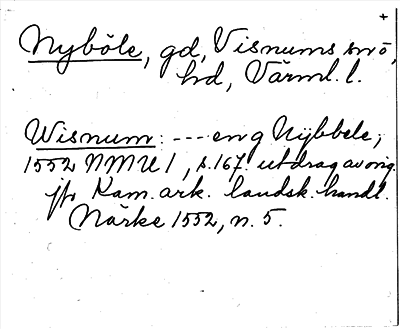 +
Nyböle, gd, Visnums snö,
hd, Värml. l.
Wisnum: --- en g Nybbele;
1552 NMU 1, s. 167. utdrag av orig.
jfr Kam. ark. landsk. handl.
Närke 1552, n. 5.